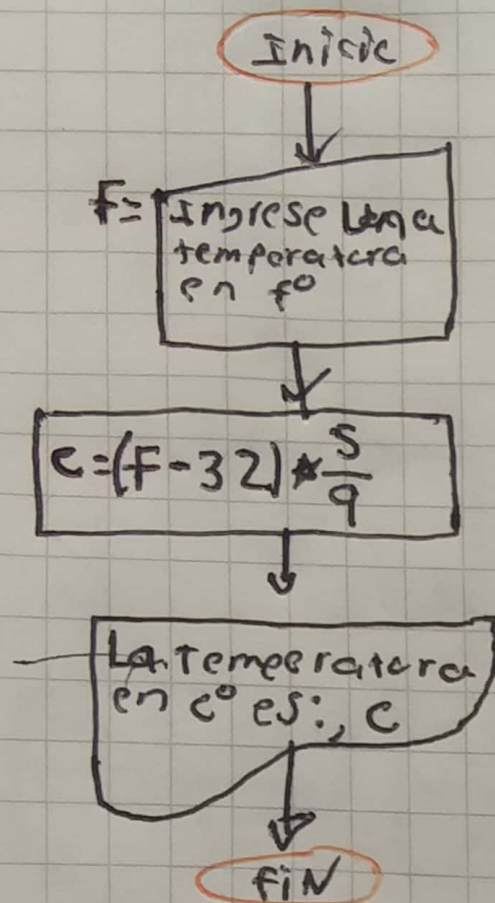 Inicio
F=
Ingrese una
temperatura
en f°
C=(F-32)*5/9
La temperatura
en c° es:, C
fiN